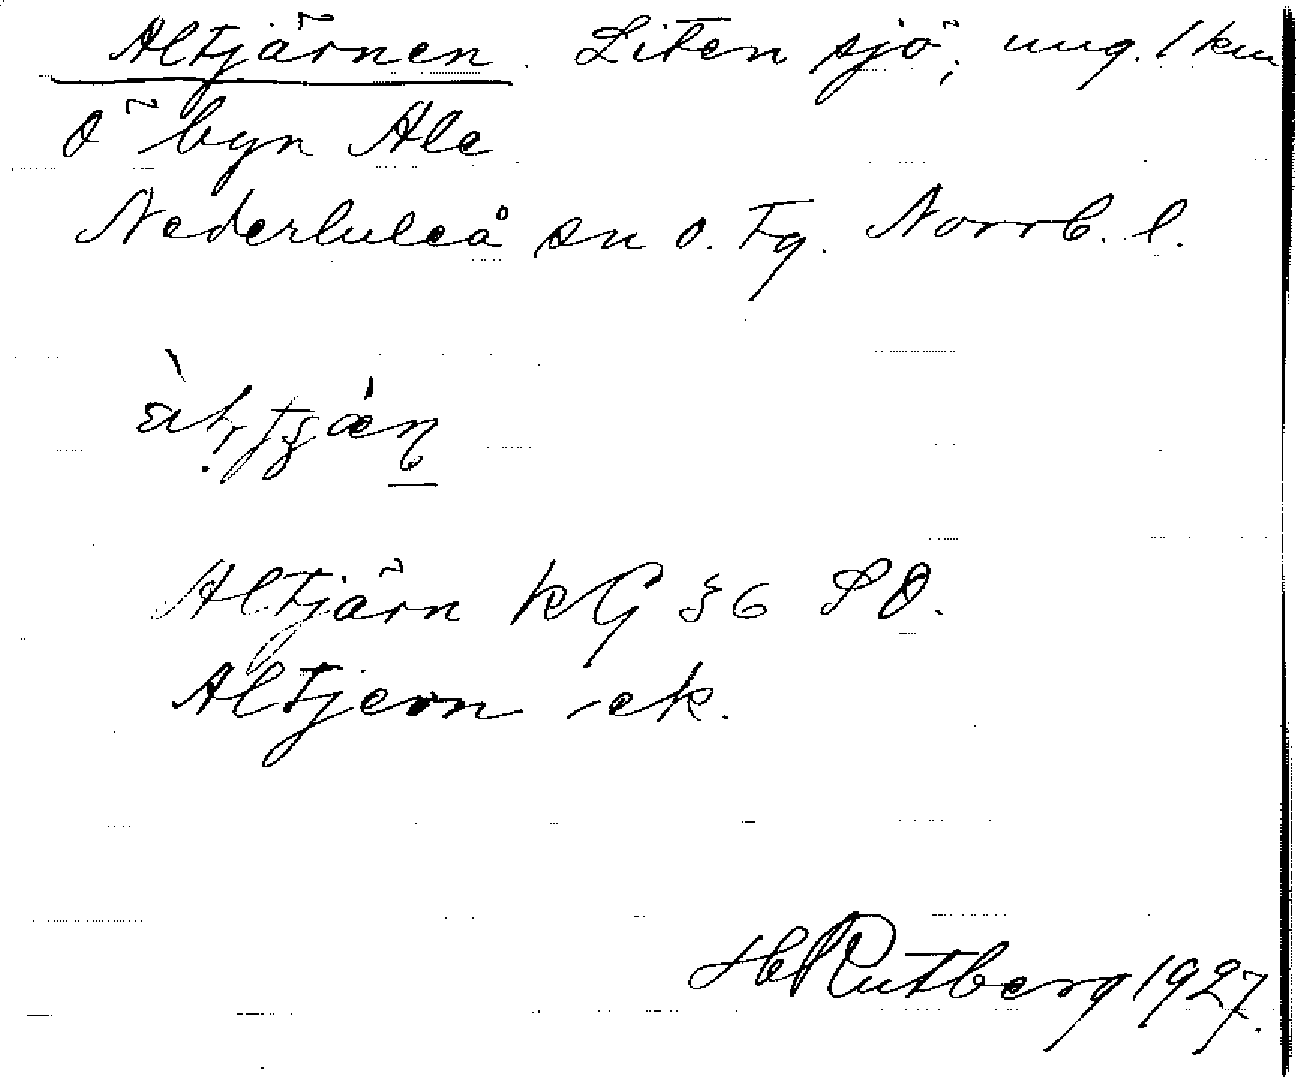 Altjärnen. Liten sjö, ung. 1 km
Ö byn Ale
Nederluleå sn o. tg. Norrb. l.
Altjärn kG 36 SO.
Altjern -ek.
H Rutberg 1927.